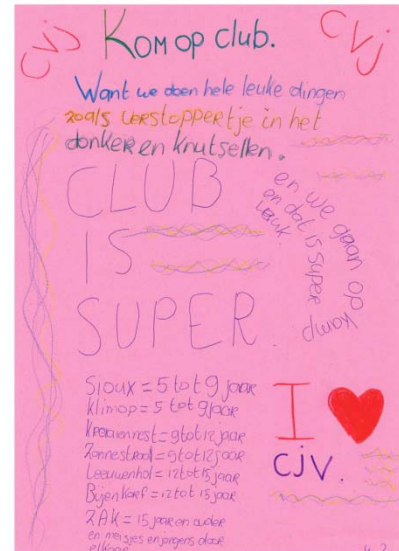 CVJ
Kom op club.
CVJ
Want we doen hele leuke dingen
zoals verstoppertje in het
donker en knutsellen.
CLUB
IS
SUPER.
en we gaan op
komp
en dat is super
leuk.
Sioux = 5 tot 9 jaar
klimop = 5 tot 9 jaar
= 9 tot 12 jaar
Zonnestraal = 9 tot 12 jaar
Leeuwenhol = 12 tot 15 jaar
Bijenkorf = 12 tot 15 jaar
ZAK = 15 jaar en ouder
en meisjes en jongens door
elkaar
I ❤
CJV.